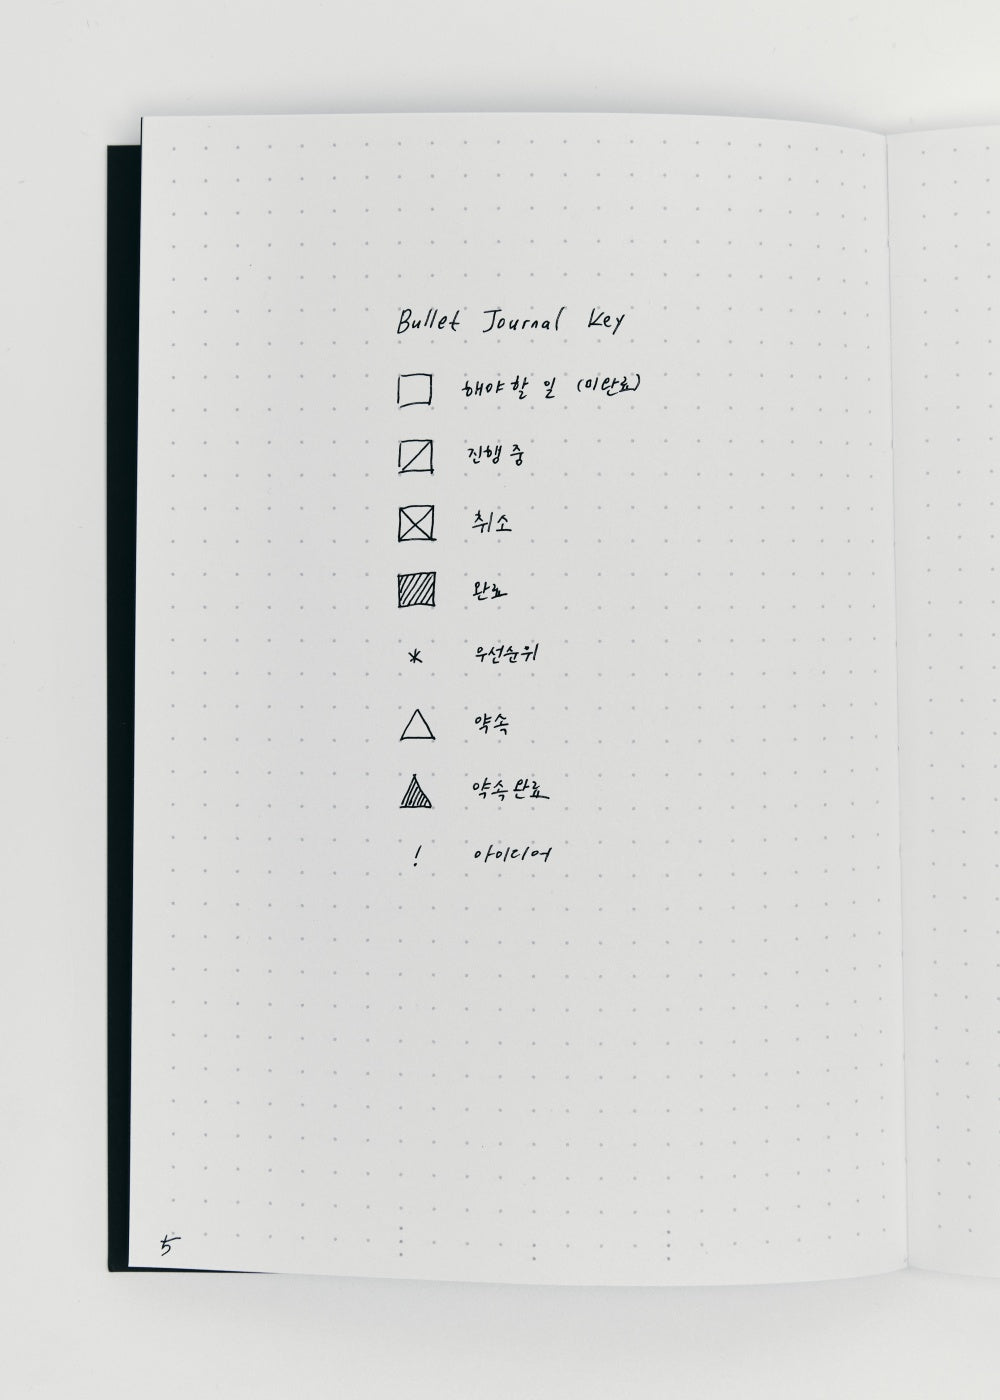 Bullet Journal Key
해야 할 일 (미완료)
진행 중
취소
완료
* 우선순위
약속
약속 완료
! 아이디어
5